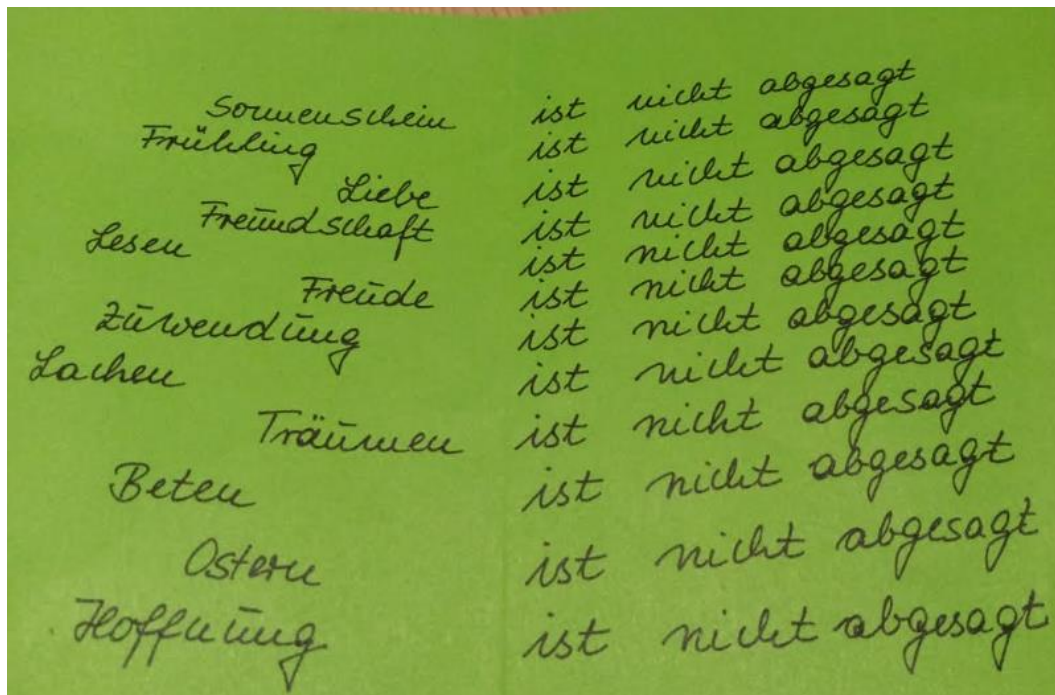 Sonnenschein ist nicht abgesagt
Frühling ist nicht abgesagt
Liebe ist nicht abgesagt
Freundschaft ist nicht abgesagt
Lesen ist nicht abgesagt
Freude ist nicht abgesagt
Zuwendung ist nicht abgesagt
Lachen ist nicht abgesagt
Träumen ist nicht abgesagt
Beten ist nicht abgesagt
Ostern ist nicht abgesagt
Hoffnung ist nicht abgesagt